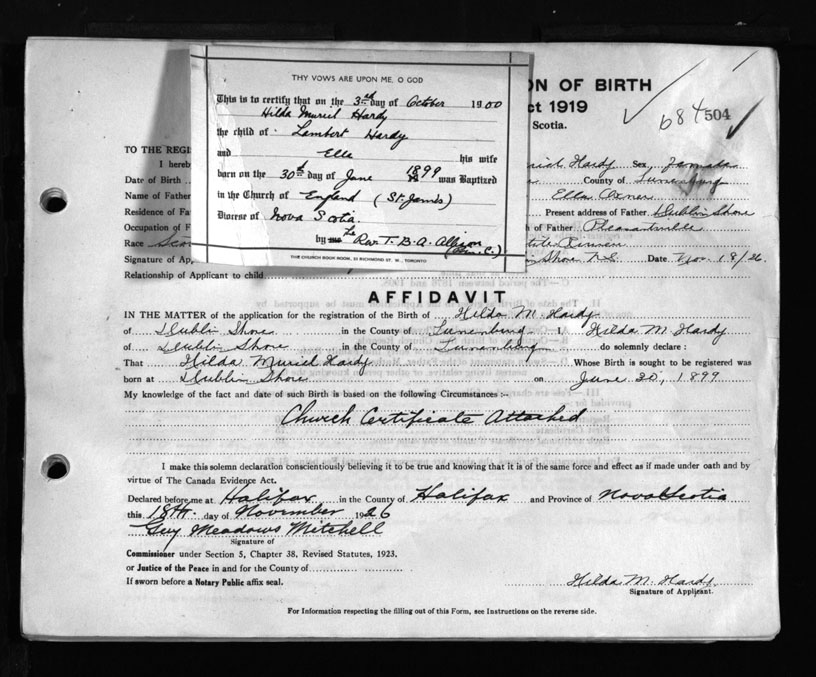 THY VOWS ARE UPON ME, O GOD
This is to certify that on the 3rd day of October 1900
Hilda Muriel Hardy
the child of Lambert Hardy
and Ella his wife
born on the 30th day of June 1899 was Baptized
in the Church of England (St. James)
Diocese of Nova Scotia.
by the Rev. T. B. A.
THE CHURCH BOOK ROOM, RICHMOND ST. W., TORONTO
ON OF BIRTH
ct 1919
Scotia.
684 504
TO THE REGI
I hereb uriel Hardy Sex Female
Date of Birth County of Lunenburg
Name of Father Ella
Residence of Fa Present address of Father Dublin Shore
Occupation of of Father Pleasantville
Race
Signature of Ap Shore, N.S. Date Nov. 18/26.
Relationship of Applicant to child
AFFIDAVIT
IN THE MATTER of the application for the registration of the Birth of Hilda M. Hardy
of Dublin Shore in the County of Lunenburg I, Hilda M. Hardy
of Dublin Shore in the County of Lunenburg do solemnly declare :
That Hilda Muriel Hardy Whose Birth is sought to be registered was
born at Dublin Shore on June 30, 1899
My knowledge of the fact and date of such Birth is based on the following Circumstances :-
Church Certificate Attached
I make this solemn declaration conscientiously believing it to be true and knowing that it is of the same force and effect as if made under oath and by
virtue of The Canada Evidence Act.
Declared before me at Halifax in the County of Halifax and Province of Nova Scotia
this 18th day of November 1926
Guy Meadows Mitchell
Signature of
Commissioner under Section 5, Chapter 38, Revised Statutes, 1923.
or Justice of the Peace in and for the County of
If sworn before a Notary Public affix seal.
Hilda M. Hardy
Signature of Applicant.
For Information respecting the filling out of this Form, see Instructions on the reverse side.